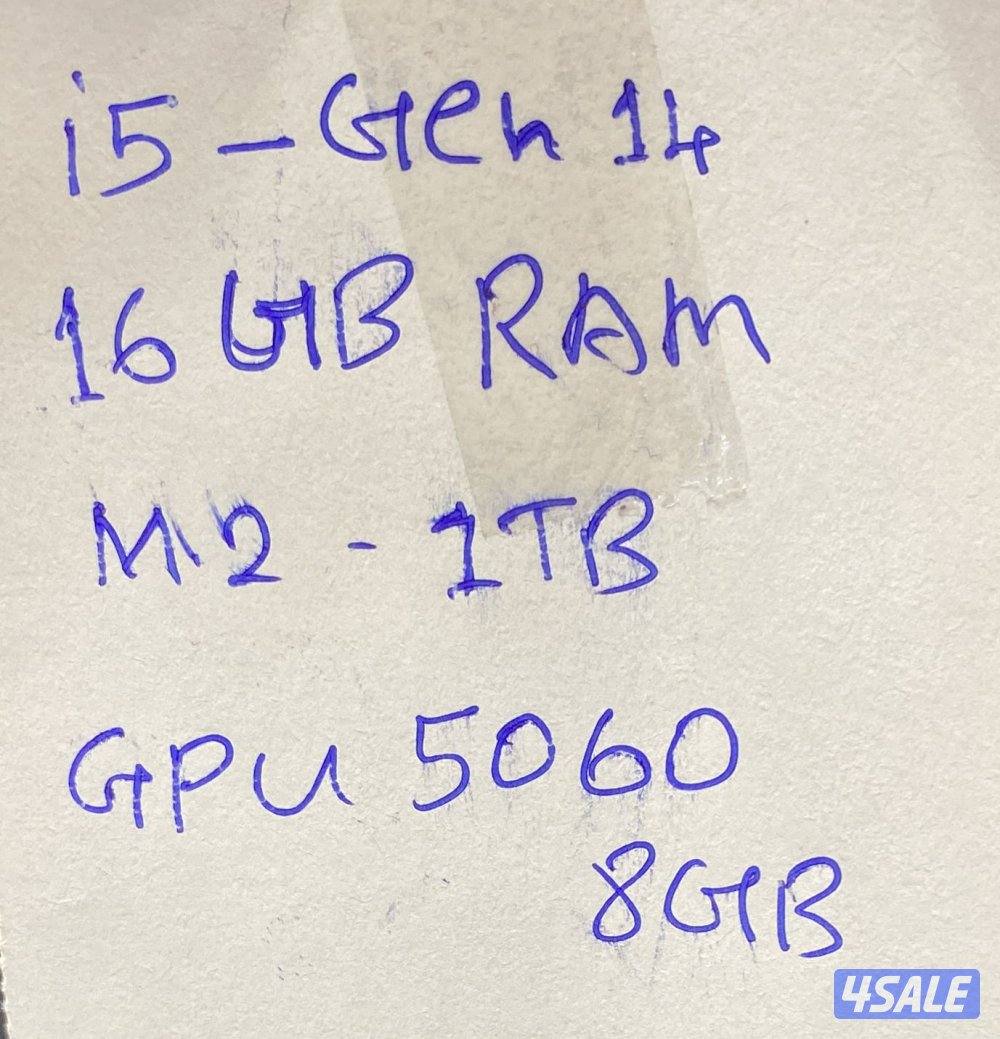 i5 - Gen 14
16 GB RAM
M.2 - 1TB
GPU 5060
8GB
4SALE